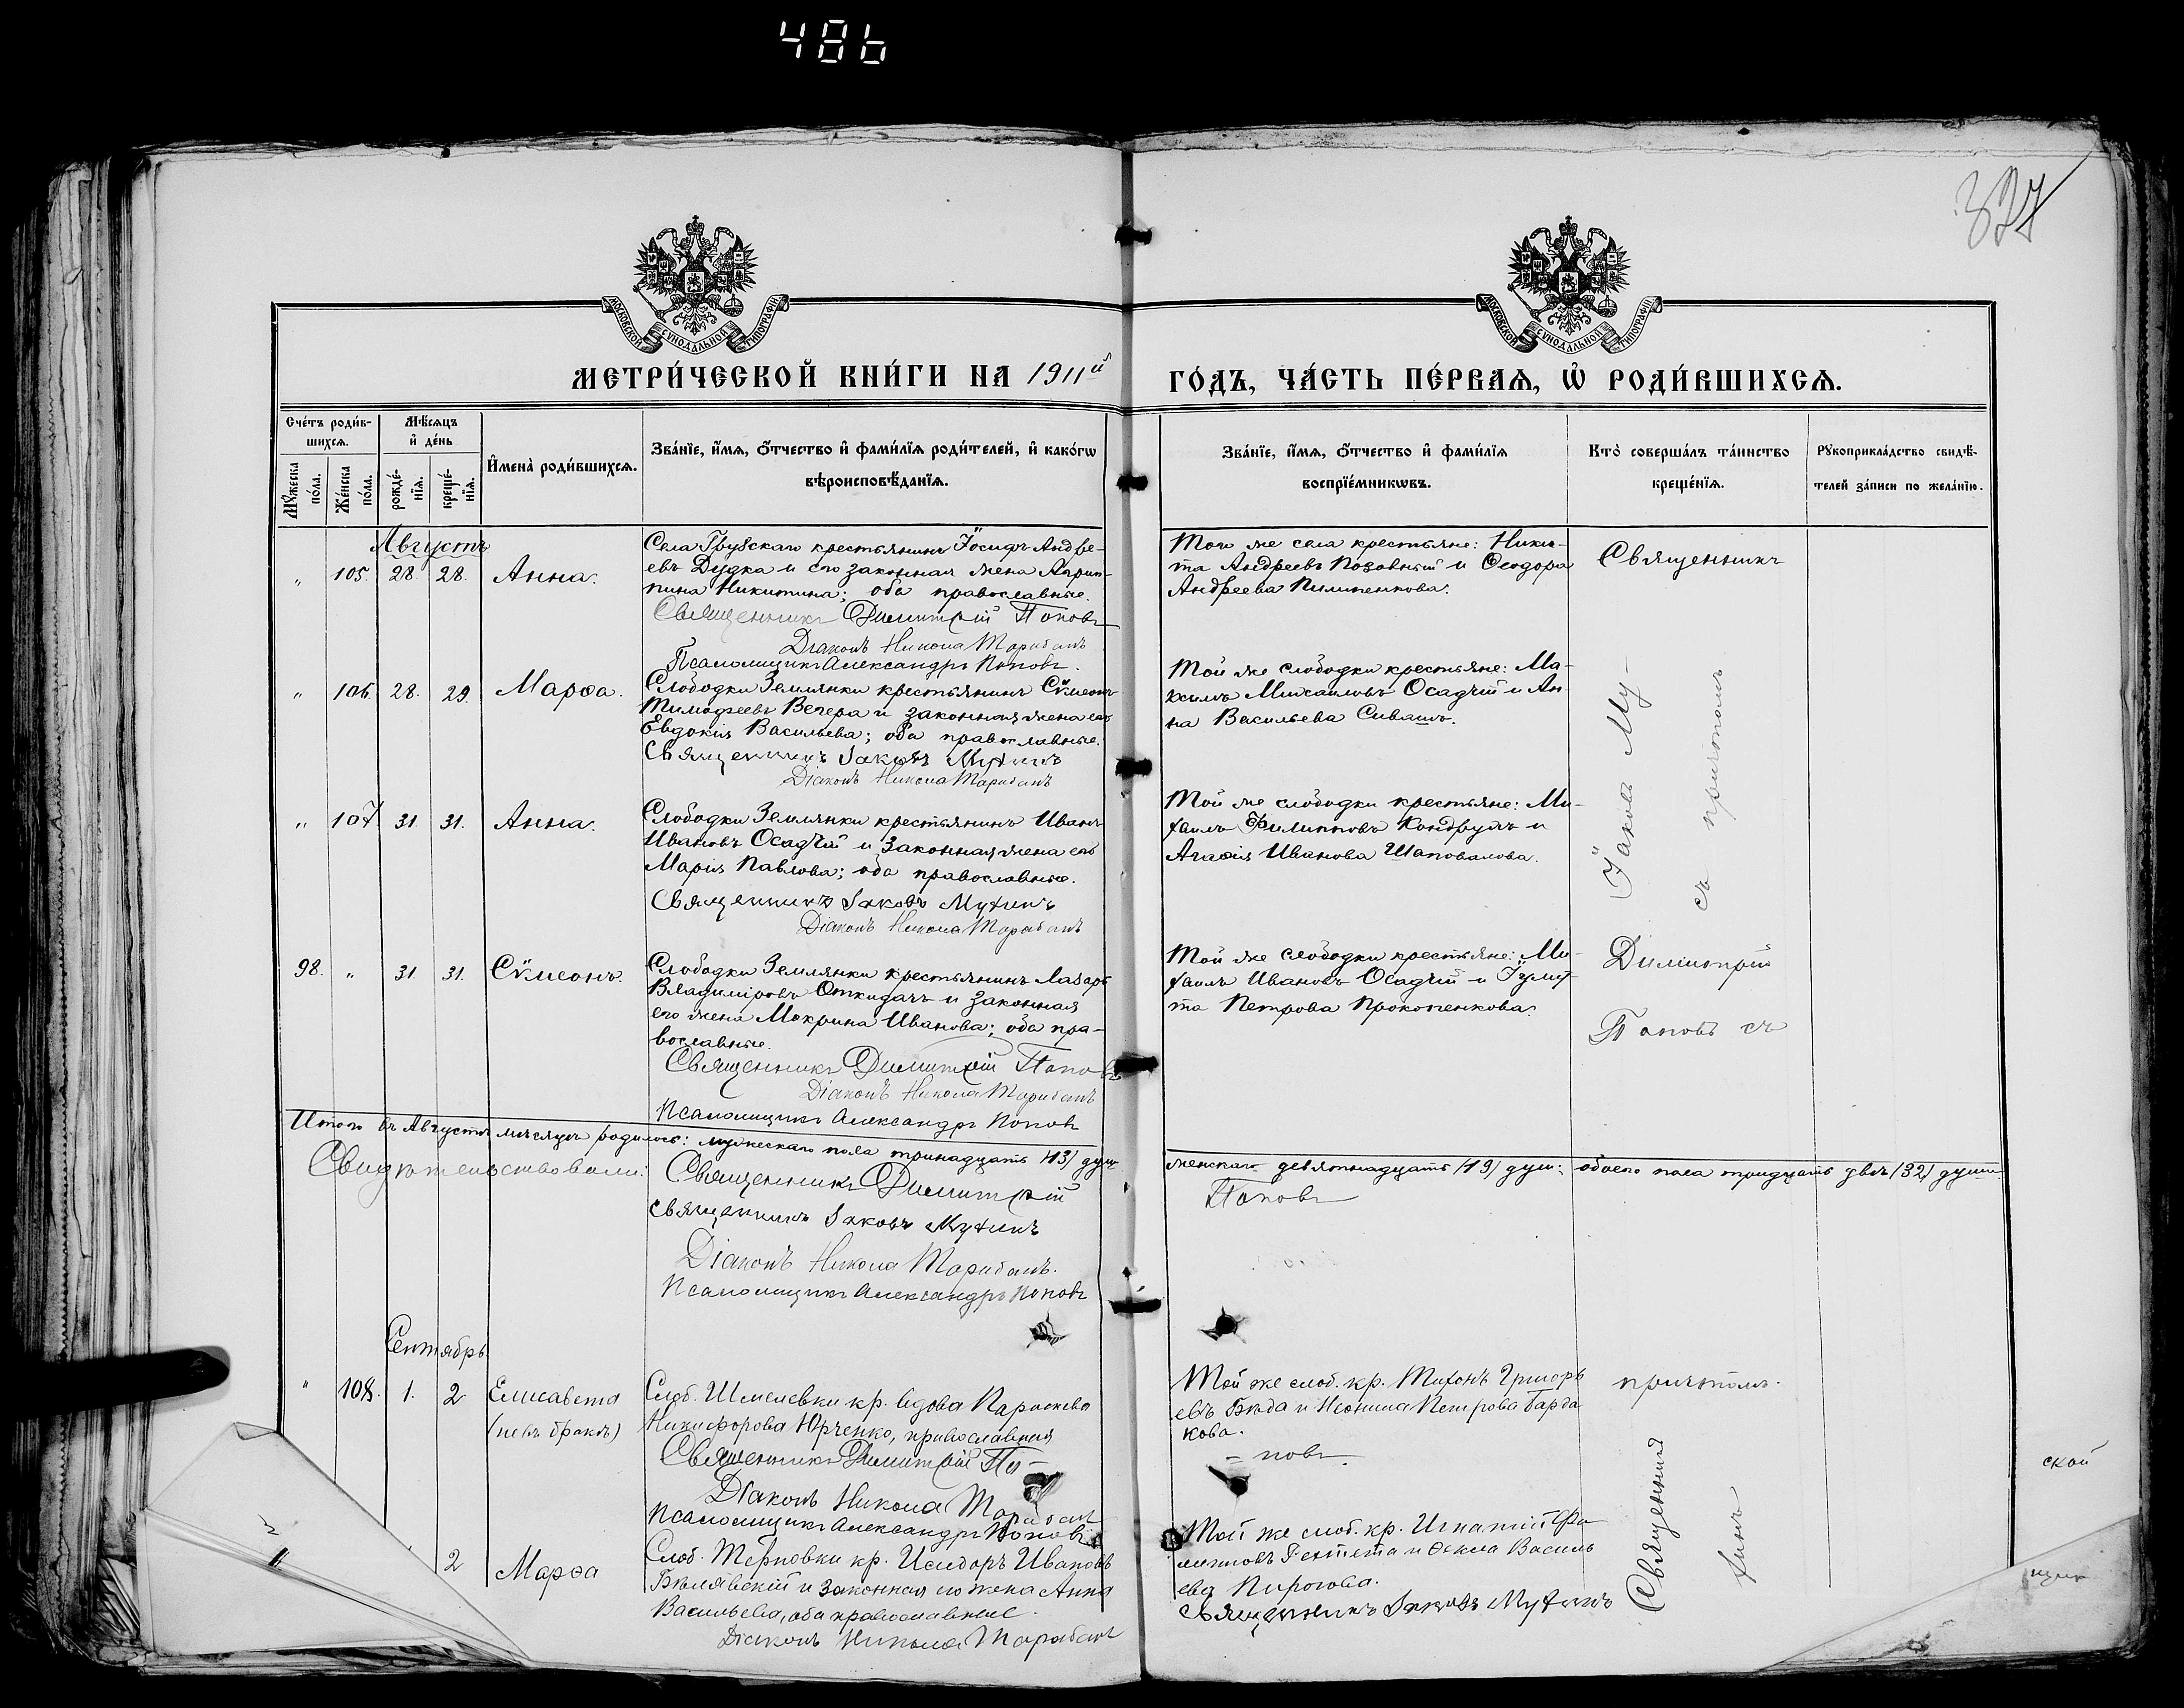 486
327
МОСКОВСКОЙ СУНОДАЛЬНОЙ ТИПОГРАФІИ
МОСКОВСКОЙ СУНОДАЛЬНОЙ ТИПОГРАФІИ
МЕТРИ́ЧЕСКОЙ КНИ́ГИ НА 1911й ГО́ДЪ, ЧА́СТЬ ПЕ́РВАЯ, Ѽ РОДИ́ВШИХСЯ.
Счетъ роди́в-
шихся.
Мѣсяцъ
и де́нь
Му́жеска по́ла.
Же́нска по́ла.
рожде́-
нія.
креще́-
нія.
Имена̀ роди́вшихся.
Зва́ніе, и́мя, о́тчество и фами́лія роди́телей, и како́гѡ
вѣроисповѣ́данія.
Зва́ніе, и́мя, о́тчество и фами́лія
воспріе́мникѡвъ.
Кто̀ соверша́лъ та́инство
креще́нія.
Рукоприкла́дство свидѣ́-
телей за́писи по жела́нію.
Августъ
„ 105. 28. 28. Анна.
Села Грузскаго крестьянинъ Іосифъ Андре-
евъ Дудка и его законная жена Агрип-
пина Никитина; оба православные.
Священникъ Димитрій Поповъ
Діаконъ Никола Тарабанъ
Псаломщикъ Александръ Поповъ.
Того же села крестьяне: Ники-
та Андреевъ Позовный и Ѳеодора
Андреева Пилипенкова.
Священникъ
„ 106. 28. 29. Марѳа.
Слободки Землянки крестьянинъ Сѵмеонъ
Тимофеевъ Вечера и законная жена его
Евдокія Васильева; оба православные.
Священникъ Іаковъ Мухинъ
Діаконъ Никола Тарабанъ
Той же слободки крестьяне: Ма-
ксимъ Михаиловъ Осадчій и Ан-
на Васильева Сивашъ.
Іаковъ Му-
съ причтомъ
„ 107. 31. 31. Анна.
Слободки Землянки крестьянинъ Иванъ
Ивановъ Осадчій и законная жена его
Марія Павлова; оба православные.
Священникъ Іаковъ Мухинъ
Діаконъ Никола Тарабанъ
Той же слободки крестьяне: Ми-
хаилъ Филипповъ Кондруцъ и
Агаѳія Иванова Шаповалова.
98. „ 31. 31. Сѵмеонъ.
Слободки Землянки крестьянинъ Лазарь
Владиміровъ Откидачъ и законная
его жена Мокрина Иванова; оба пра-
вославные.
Священникъ Димитрій Поповъ
Діаконъ Никола Тарабанъ
Псаломщикъ Александръ Поповъ
Той же слободки крестьяне: Ми-
хаилъ Ивановъ Осадчій и Іулит-
та Петрова Прокопенкова.
Димитрій
Поповъ съ
Итого въ Августѣ мѣсяцѣ родилось: мужескаго пола тринадцать /13/ душъ
женскаго девятнадцать /19/ душъ; обоего пола тридцать двѣ /32/ души
Свидѣтельствовали: Священникъ Димитрій
Поповъ
Священникъ Іаковъ Мухинъ
Діаконъ Никола Тарабанъ.
Псаломщикъ Александръ Поповъ
Сентябрь
„ 108. 1. 2 Елисавета
(невъ бракъ)
Слоб. Шмелевки кр. вдова Параскева
Никифорова Юрченко, православная
Священникъ Димитрій По-
Діаконъ Никола Тарабанъ
Псаломщикъ Александръ Поповъ
Той же слоб. кр. Тихонъ Григорь
евъ Бѣда и Неонила Петрова Гарда
кова.
= повъ.
причтомъ.
2 Марѳа
Слоб. Терновки кр. Исидоръ Ивановъ
Бѣлявскій и законная его жена Анна
Васильева, оба православные.
Діаконъ Никола Тарабанъ
Той же слоб. кр. Игнатій Фи
липповъ и Ѳекла Василь
ева Пирогова.
Священникъ Іаковъ Мухинъ
Священникъ
хинъ
ской
щик